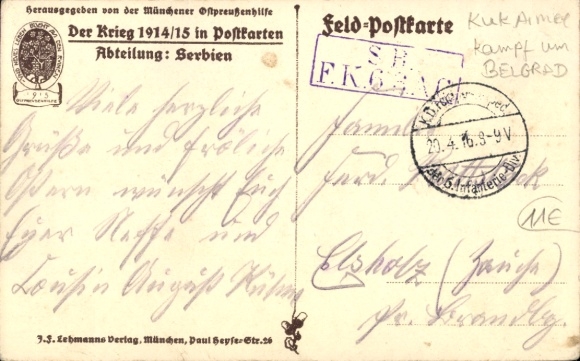 Herausgegeben von der Münchener Ostpreußenhilfe
Der Krieg 1914/15 in Postkarten
Abteilung: Serbien
1915
Viele herzliche
Grüße und fröhliche
Ostern wünscht Euch
Euer Neffe und
Cousin August
J.F. Lehmanns Verlag, München, Paul Heyse-Str. 26
Feld-Postkarte
KuK Armee
Kampf um
BELGRAD
S.B.
20.4.16.8-9V
Infanterie-Div.
Familie
Ferd.
Elsholz (Zauche)
Pr. Brandbg.
11E